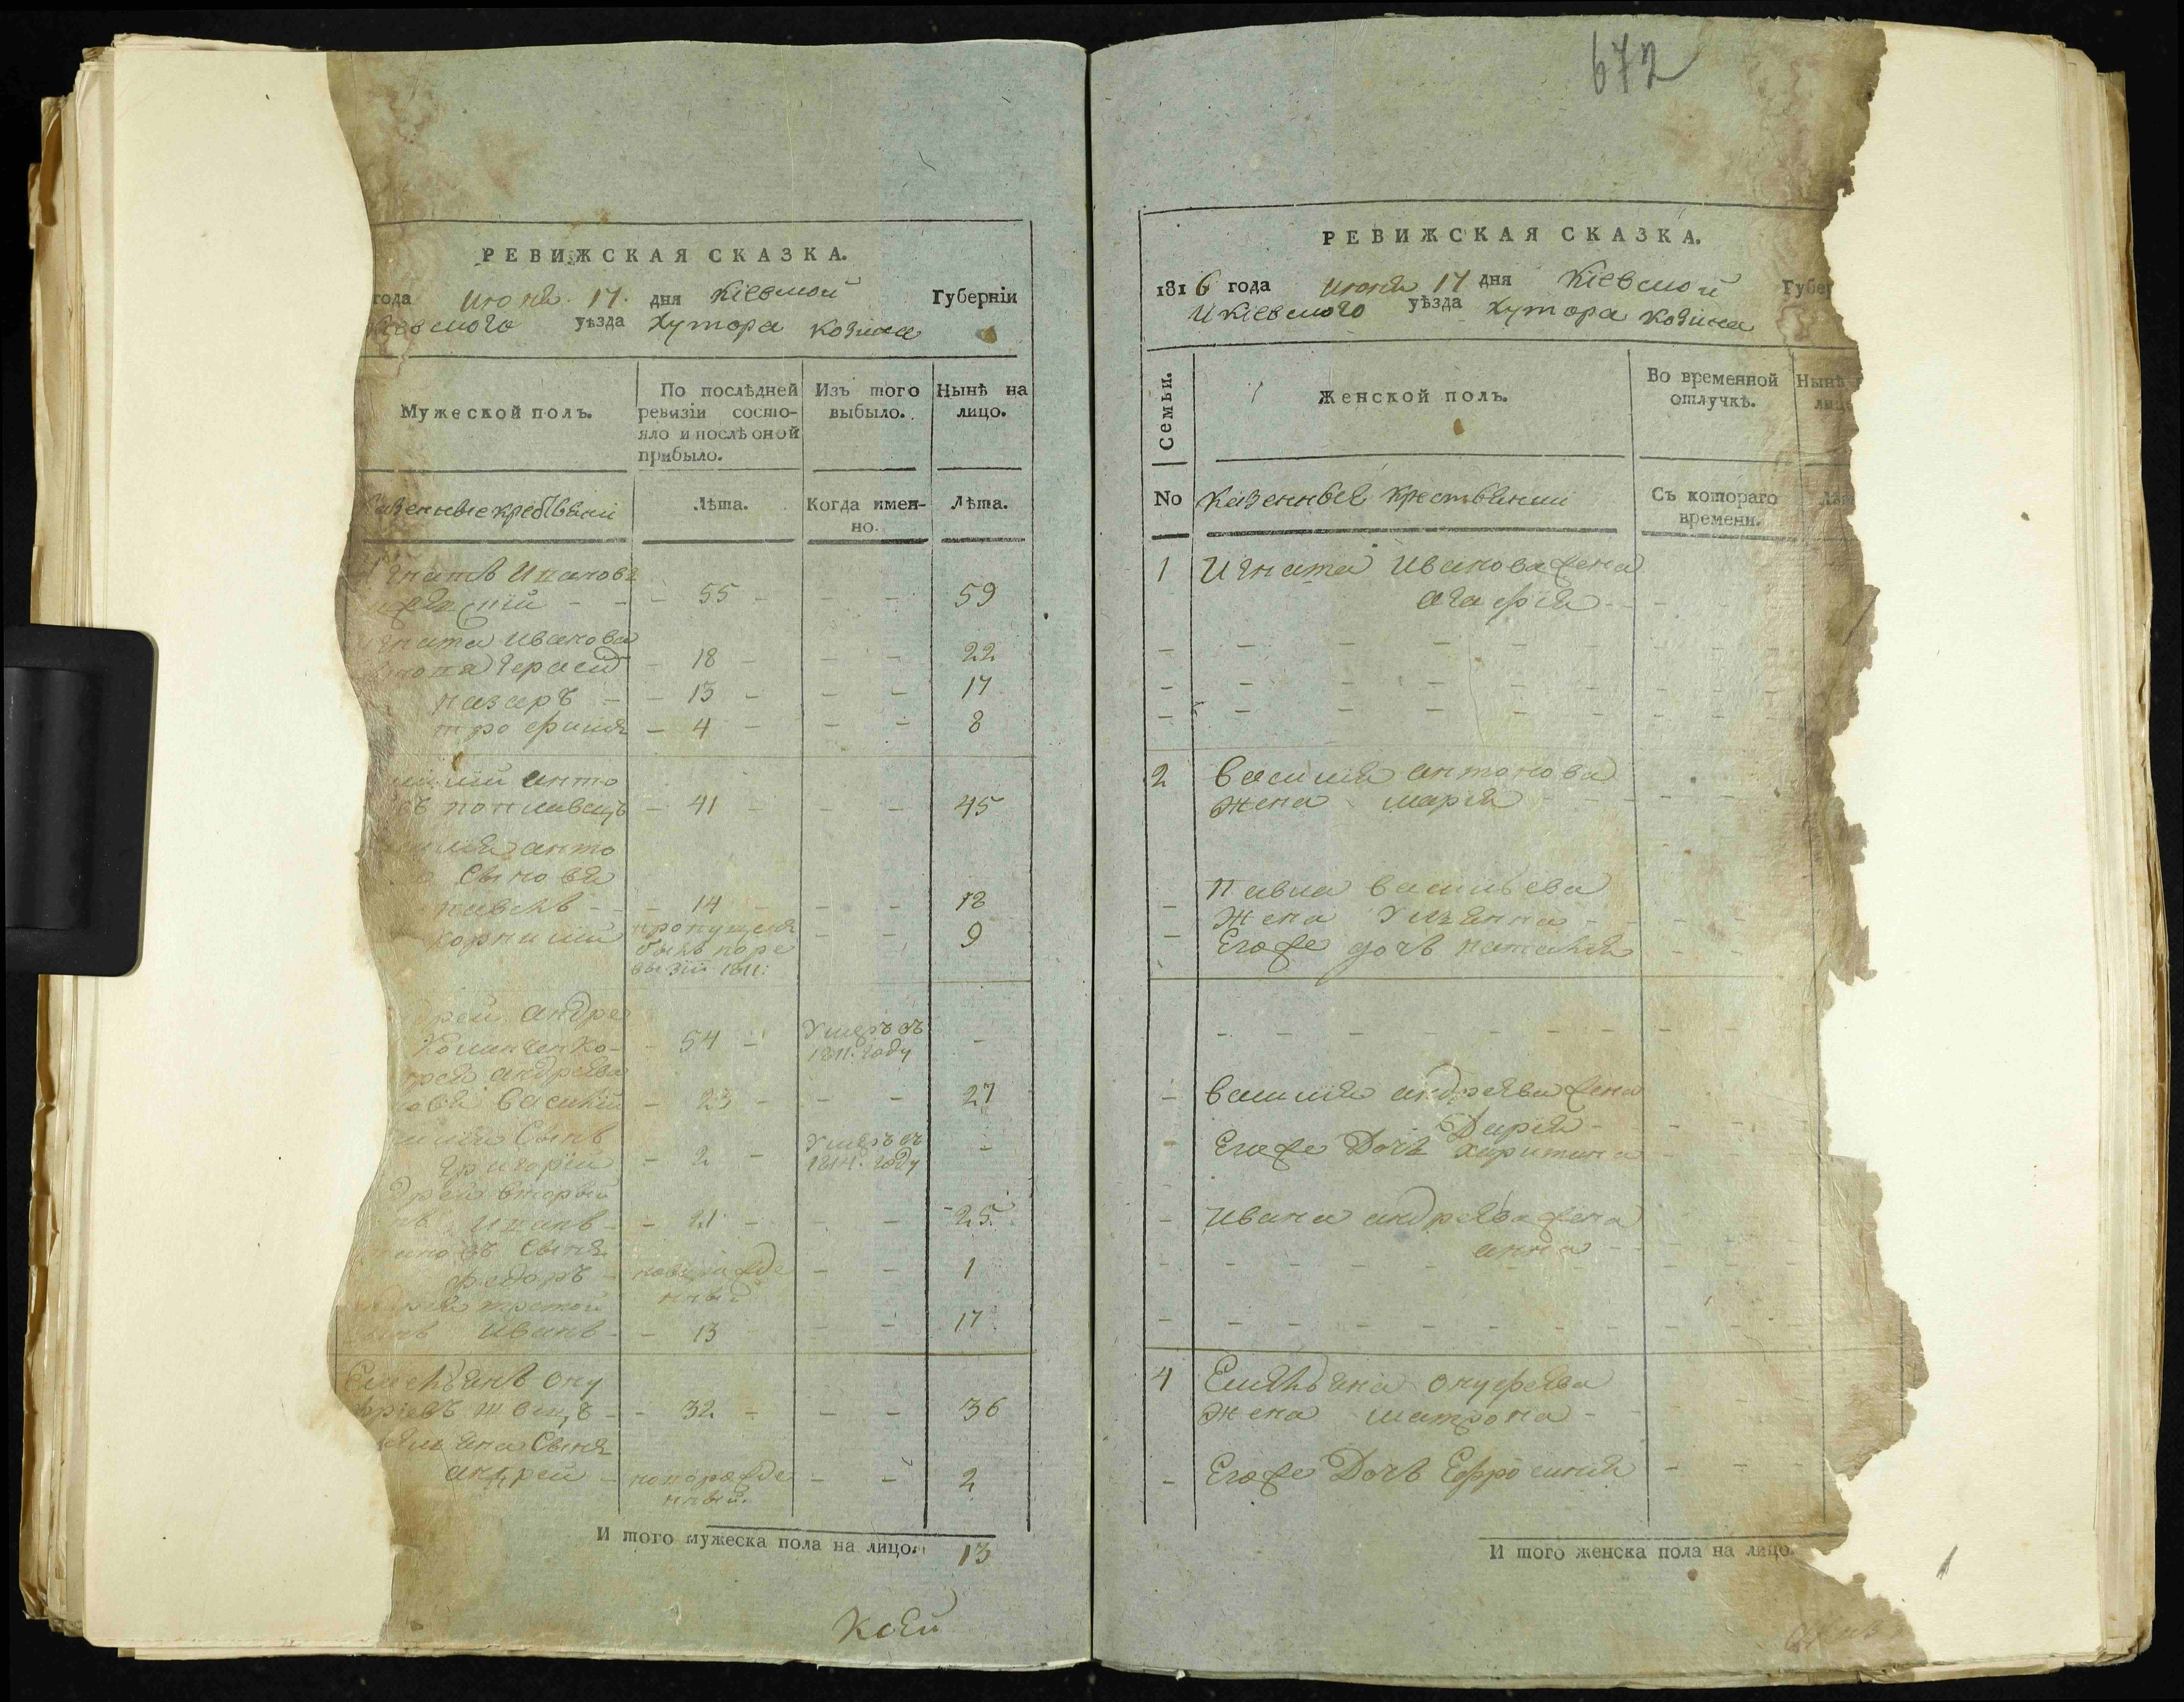 672
РЕВИЖСКАЯ СКАЗКА.
года июня 17. дня Кіевской Губерніи
уѣзда хутора козина
Мужеской полъ.
По послѣдней ревизіи состо-
яло и послѣ оной
прибыло.
Изъ того
выбыло.
Нынѣ на
лицо.
Лѣта.
Когда имен-
но.
Лѣта.
55 - - 59
18 - - 22
назаръ - 13 - - 17
трофимъ - 4 - - 8
анто
41 - - 45
анто
Сыновья
павелъ - 14 - - 18
корнилий пропущенъ - - 9
былъ по ре
визіи 1811:
андре
54 - Умеръ въ
1811: году -
андреева
василій - 23 - - 27
Сынъ
григорій - 2 - Умеръ въ
1814: году -
вторый
иванъ - 21 - - 25.
Сынъ
федоръ - новорожде - - 1
нный
третой
иванъ - 13 - - 17
Емельянъ ону
швецъ - 32 - - 36
Сынъ
андрей - новорожде - - 2
нный.
И того мужеска пола на лицо. 13
Коей
РЕВИЖСКАЯ СКАЗКА.
1816 года июня 17 дня Кіевской Губер
И Кіевского уѣзда хутора козина
Семьи.
Женской полъ.
Во временной
отлучкѣ.
Нынѣ
лицо
No Казенные крестьянии
Съ котораго
времени.
1 Игната Иванова жена
агафія
2 василия антонова
жена марія
павла васильева
жена Ульянна
Егоже дочь наталия
василия андреева жена
Дария
Егоже Дочь харитина
Ивана андреева жена
анна
4 Емельяна онуфрева
жена матрона
Егоже Дочь Ефросиния
И того женска пола на лицо.